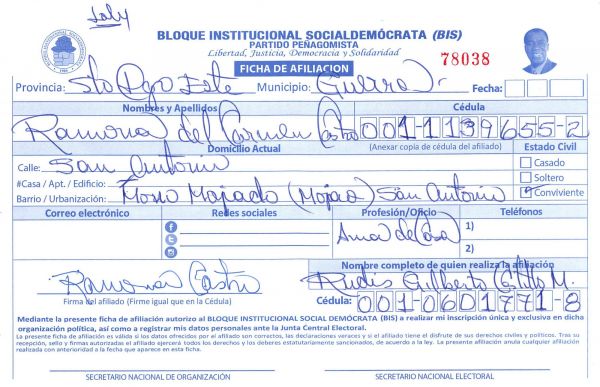 Joly
BLOQUE INSTITUCIONAL SOCIALDEMÓCRATA (BIS)
PARTIDO PEÑAGOMISTA
Libertad, Justicia, Democracia y Solidaridad
FICHA DE AFILIACION
78038
Provincia: Sto Dgo Este Municipio: Guerra Fecha:
Nombres y Apellidos Cédula
Ramona del Carmen Castro 001-1139655-2
Domicilio Actual (Anexar copia de cédula del afiliado) Estado Civil
Calle: San Antonio Casado
#Casa / Apt. / Edificio: Soltero
Barrio / Urbanización: Mono Mojado (Mojao) San Antonio Conviviente
Correo electrónico Redes sociales Profesión/Oficio Teléfonos
Ama de Casa 1)
2)
Nombre completo de quien realiza la afiliación
Ramona Castro Rudis Gilberto Castillo M.
Firma del afiliado (Firme igual que en la Cédula) Cédula: 001-0601771-8
Mediante la presente ficha de afiliación autorizo al BLOQUE INSTITUCIONAL SOCIAL DEMÓCRATA (BIS) a realizar mi inscripción única y exclusiva en dicha
organización política, así como a registrar mis datos personales ante la Junta Central Electoral.
La presente ficha de afiliación es válida si los datos ofrecidos por el afiliado son correctos, las declaraciones veraces y si el afiliado tiene el disfrute de sus derechos civiles y políticos. Tras su
recepción, sello y firmas autorizadas el afiliado ejercerá todos los derechos y los deberes estatutariamente sancionados, de acuerdo a la ley. La presente afiliación anula cualquier afiliación
realizada con anterioridad a la fecha que aparece en esta ficha.
SECRETARIO NACIONAL DE ORGANIZACIÓN SECRETARIO NACIONAL ELECTORAL